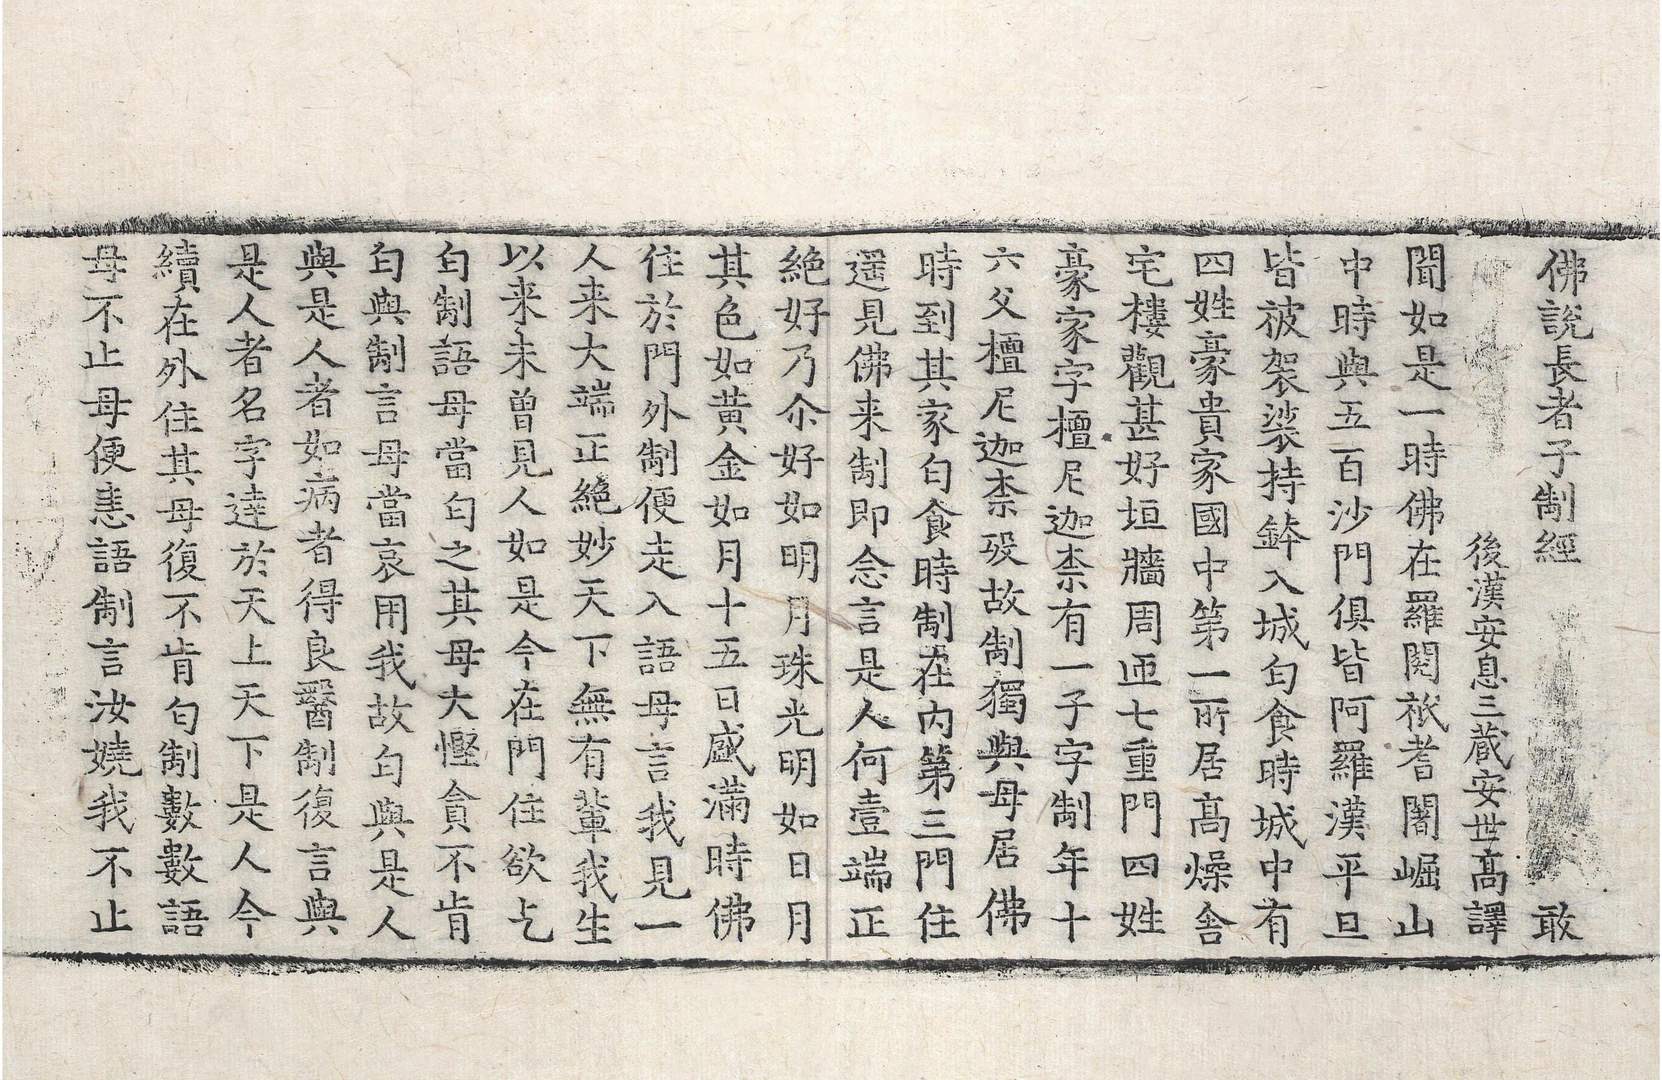 佛說長者子制經 敢
後漢安息三藏安世高譯
聞如是一時佛在羅閱祇耆闍崛山
中時與五百沙門俱皆阿羅漢平旦
皆被袈裟持鉢入城匃食時城中有
四姓豪貴家國中第一所居高燥舍
宅樓觀甚好垣牆周迊七重門四姓
豪家字檀尼迦柰有一子字制年十
六父檀尼迦柰歿故制獨與母居佛
時到其家匃食時制在內第三門住
遥見佛来制即念言是人何壹端正
絶好乃尒好如明月珠光明如日月
其色如黃金如月十五日盛滿時佛
住於門外制便走入語母言我見一
人来大端正絶妙天下無有輩我生
以来未曾見人如是今在門住欲乞
匃制語母當匃之其母大慳貪不肯
匃與制言母當哀用我故匃與是人
與是人者如病者得良醫制復言與
是人者名字達於天上天下是人今
續在外住其母復不肯匃制數數語
母不止母便恚語制言汝嬈我不止